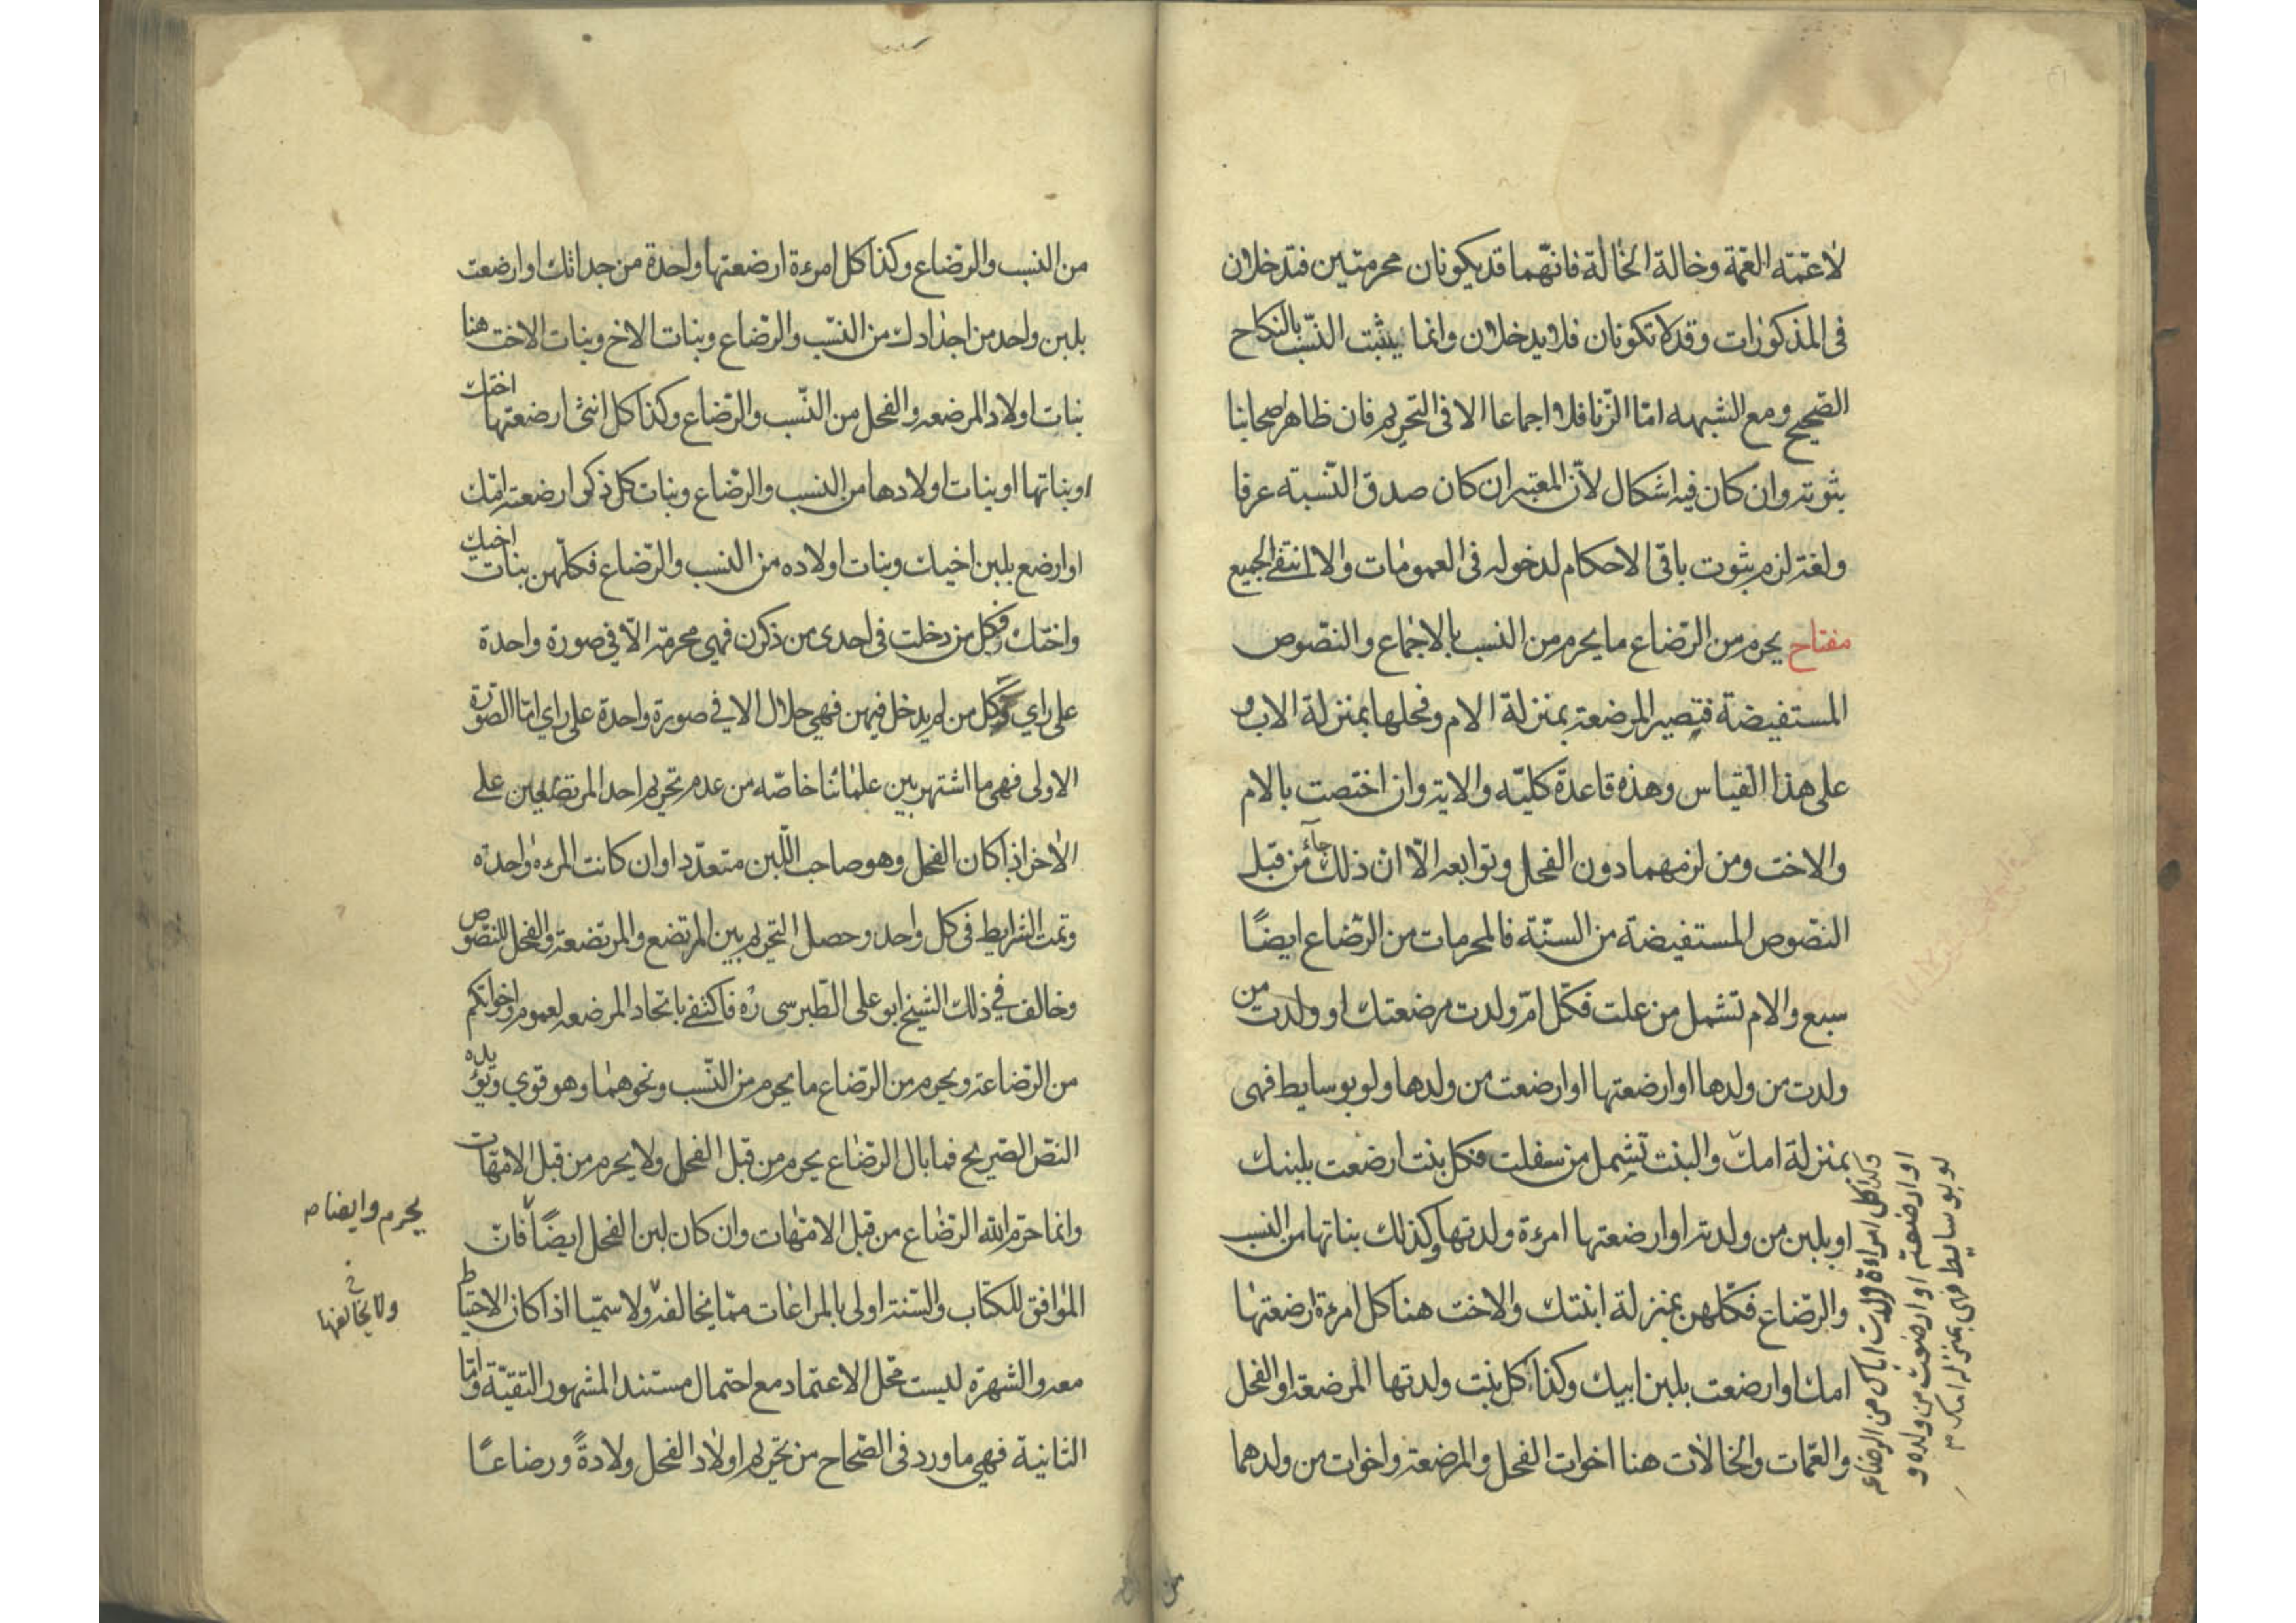 لا عمته العمة وخالة الخالة فانهما قد يكونان محرمتين فتدخلان
فى المذكورات وقد لا تكونان فلا يدخلان وانما يثبت النسب بالنكاح
الصحيح ومع الشبهه امّا الزنا فلا اجماعا الا فى التحريم فان ظاهر اصحابنا
ثبوته وان كان فيه اشكال لان المعتبر ان كان صدق النسبة عرفا
ولغة لزم ثبوت باقى الاحكام لدخوله فى العمومات والا انتفى الجميع
مفتاح يحرم من الرضاع ما يحرم من النسب بالاجماع والنصوص
المستفيضة فتصير المرضعة بمنزلة الام وفحلها بمنزلة الاب و
على هذا القياس وهذه قاعدة كليّه والاية وان اختصت بالام
والاخت ومن لزمهما دون الفحل وتوابعه الّا ان ذلك جاء من قبل
النصوص المستفيضة من السنّة فالمحرمات من الرضاع ايضًا
سبع والام تشمل من علت فكل امّ ولدت مرضعتك او ولدت من
ولدت من ولدها او ارضعتها او ارضعت من ولدها ولو بوسايط فهى
بمنزلة امك والبنت تشمل من سفلت فكل بنت ارضعت بلبنك
او بلبن من ولدته او ارضعتها امرءة ولدتها وكذلك بناتها من النسب
والرّضاع فكلهن بمنزلة ابنتك والاخت هنا كل امرءة ارضعتها
امك او ارضعت بلبن ابيك وكذا كل بنت ولدتها المرضعة او الفحل
والعمّات والخالات هنا اخوات الفحل والمرضعة واخوات من ولدهما
وكذا كل امراءة ولدت اباك من الرضاعه
او ارضعته او ارضعت من ولده و
لو بوسايط فهى بمنزلة امك م
من النسب والرضاع وكذا كل امرءة ارضعتها واحدة من جداتك او ارضعت
بلبن واحد من اجدادك من النسب والرّضاع وبنات الاخ وبنات الاخت هنا
بنات اولاد المرضعه والفحل من النّسب والرّضاع وكذا كل انثى ارضعتها اختك
او بناتها او بنات اولادها من النسب والرضاع وبنات كل ذكر ارضعته امّك
او ارضع بلبن اخيك وبنات اولاده من النسب والرّضاع فكلّهن بنات اخيك
واختك وفكل من دخلت فى احدى من ذكرن فهى محرمة الّا فى صورة واحدة
على راي وكل من لم يدخل فيهن فهي حلال الا في صورة واحدة على راي امّا الصورة
الاولى فهى ما اشتهر بين علمائنا خاصّه من عدم تحريم احد المرتضعين على
الاخر اذا كان الفحل وهو صاحب اللّبن متعدّدا وان كانت المرءه واحدة
وتمت الشرايط فى كل واحد وحصل التحريم بين المرتضع والمرتضعة والفحل للنصوص
وخالف في ذلك الشيخ ابو على الطّبرسى ره فاكتفى باتحاد المرضعه لعموم واخواتكم
من الرّضاعة ويحرم من الرّضاع ما يحرم من النّسب ونحوهما وهو قوي ويؤيده
النصّ الصريح فما بال الرضاع يحرم من قبل الفحل ولا يحرم من قبل الامهات
وانما حرّم الله الرّضاع من قبل الامّهات وان كان لبن الفحل ايضًا فان
الموافق للكتاب والسّنة اولى بالمراعات ممّا يخالفه ولا سمّيا اذا كان الاحتياط
معه والشهرة ليست محّل الاعتماد مع احتمال مستند المشهور التقيّة وامّا
الثانية فهي ما ورد فى الصّحاح من تحريم اولاد الفحل ولادةً ورضاعًا
يحرم وايضا م
خ
ولا يخالفها